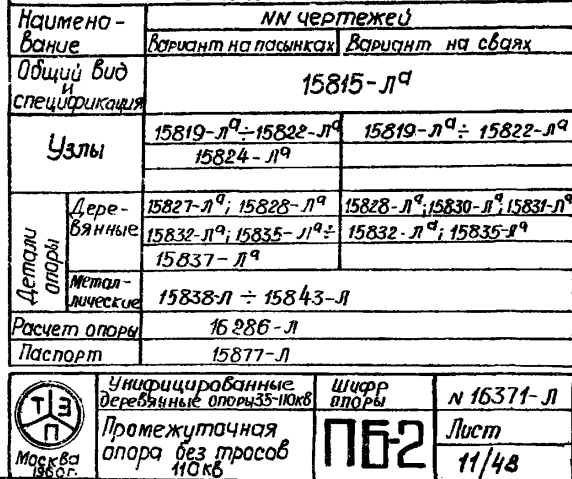 Наимено-
вание
NN чертежей
Вариант на пасынках
Вариант на сваях
Общий вид
и
спецификация
15815-Лª
Узлы
15819-Лª÷15822-Лª
15819-Лª÷ 15822-Лª
15824-Лª
Детали
опоры
Дере-
вянные
15827-Лª; 15828-Лª
15828-Лª; 15830-Лª; 15831-Лª
15832-Лª; 15835-Лª÷
15832-Лª; 15835-Лª
15837-Лª
Метал-
лические
15838-Л ÷ 15843-Л
Расчет опоры
16286-Л
Паспорт
15877-Л
ТЭП
Москва
1960г.
Унифицированные
деревянные опоры 35-110кв
Промежуточная
опора без тросов
110кв
Шифр
опоры
ПБ-2
N 16371-Л
Лист
11/48